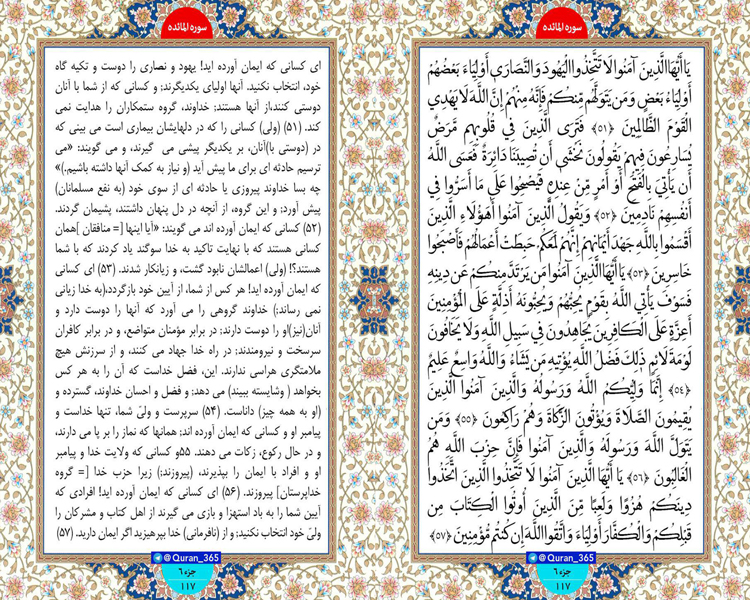 سوره المائده
يَا أَيُّهَا الَّذِينَ آمَنُوا لَا تَتَّخِذُوا الْيَهُودَ وَالنَّصَارَى أَوْلِيَاءَ بَعْضُهُمْ
أَوْلِيَاءُ بَعْضٍ وَمَن يَتَوَلَّهُم مِّنكُمْ فَإِنَّهُ مِنْهُمْ إِنَّ اللَّهَ لَا يَهْدِي
الْقَوْمَ الظَّالِمِينَ ﴿۵۱﴾ فَتَرَى الَّذِينَ فِي قُلُوبِهِم مَّرَضٌ
يُسَارِعُونَ فِيهِمْ يَقُولُونَ نَخْشَى أَن تُصِيبَنَا دَائِرَةٌ فَعَسَى اللَّهُ
أَن يَأْتِيَ بِالْفَتْحِ أَوْ أَمْرٍ مِّنْ عِندِهِ فَيُصْبِحُوا عَلَى مَا أَسَرُّوا فِي
أَنفُسِهِمْ نَادِمِينَ ﴿۵۲﴾ وَيَقُولُ الَّذِينَ آمَنُوا أَهَؤُلَاءِ الَّذِينَ
أَقْسَمُوا بِاللَّهِ جَهْدَ أَيْمَانِهِمْ إِنَّهُمْ لَمَعَكُمْ حَبِطَتْ أَعْمَالُهُمْ فَأَصْبَحُوا
خَاسِرِينَ ﴿۵۳﴾ يَا أَيُّهَا الَّذِينَ آمَنُوا مَن يَرْتَدَّ مِنكُمْ عَن دِينِهِ
فَسَوْفَ يَأْتِي اللَّهُ بِقَوْمٍ يُحِبُّهُمْ وَيُحِبُّونَهُ أَذِلَّةٍ عَلَى الْمُؤْمِنِينَ
أَعِزَّةٍ عَلَى الْكَافِرِينَ يُجَاهِدُونَ فِي سَبِيلِ اللَّهِ وَلَا يَخَافُونَ
لَوْمَةَ لَائِمٍ ذَلِكَ فَضْلُ اللَّهِ يُؤْتِيهِ مَن يَشَاءُ وَاللَّهُ وَاسِعٌ عَلِيمٌ
﴿۵۴﴾ إِنَّمَا وَلِيُّكُمُ اللَّهُ وَرَسُولُهُ وَالَّذِينَ آمَنُوا الَّذِينَ
يُقِيمُونَ الصَّلَاةَ وَيُؤْتُونَ الزَّكَاةَ وَهُمْ رَاكِعُونَ ﴿۵۵﴾ وَمَن
يَتَوَلَّ اللَّهَ وَرَسُولَهُ وَالَّذِينَ آمَنُوا فَإِنَّ حِزْبَ اللَّهِ هُمُ
الْغَالِبُونَ ﴿۵۶﴾ يَا أَيُّهَا الَّذِينَ آمَنُوا لَا تَتَّخِذُوا الَّذِينَ اتَّخَذُوا
دِينَكُمْ هُزُوًا وَلَعِبًا مِّنَ الَّذِينَ أُوتُوا الْكِتَابَ مِن
قَبْلِكُمْ وَالْكُفَّارَ أَوْلِيَاءَ وَاتَّقُوا اللَّهَ إِن كُنتُم مُّؤْمِنِينَ ﴿۵۷﴾
@Quran_365
جزء ۶
۱۱۷
سوره المائده
ای کسانی که ایمان آورده اید! یهود و نصاری را دوست و تکیه گاه
خود، انتخاب نکنید. آنها اولیای یکدیگرند؛ و کسانی که از شما با آنان
دوستی کنند،از آنها هستند؛ خداوند، گروه ستمکاران را هدایت نمی
کند. (۵۱) (ولی) کسانی را که در دلهایشان بیماری است می بینی که
در (دوستی با)آنان، بر یکدیگر پیشی می گیرند، و می گویند: «می
ترسیم حادثه ای برای ما پیش آید (و نیاز به کمک آنها داشته باشیم.)»
چه بسا خداوند پیروزی یا حادثه ای از سوی خود (به نفع مسلمانان)
پیش آورد؛ و این گروه، از آنچه در دل پنهان داشتند، پشیمان گردند.
(۵۲) کسانی که ایمان آورده اند می گویند: «آیا اینها [= منافقان ]همان
کسانی هستند که با نهایت تاکید به خدا سوگند یاد کردند که با شما
هستند؟! (ولی) اعمالشان نابود گشت، و زیانکار شدند. (۵۳) ای کسانی
که ایمان آورده اید! هر کس از شما، از آیین خود بازگردد،(به خدا زیانی
نمی رساند؛) خداوند گروهی را می آورد که آنها را دوست دارد و
آنان(نیز)او را دوست دارند؛ در برابر مؤمنان متواضع، و در برابر کافران
سرسخت و نیرومندند؛ در راه خدا جهاد می کنند، و از سرزنش هیچ
ملامتگری هراسی ندارند. این، فضل خداست که آن را به هر کس
بخواهد ( وشایسته ببیند) می دهد؛ و فضل و احسان خداوند، گسترده و
(او به همه چیز) داناست. (۵۴) سرپرست و ولیّ شما، تنها خداست و
پیامبر او و کسانی که ایمان آورده اند؛ همانها که نماز را بر پا می دارند،
و در حال رکوع، زکات می دهند. ۵۵و کسانی که ولایت خدا و پیامبر
او و افراد با ایمان را بپذیرند، (پیروزند؛) زیرا حزب خدا [= گروه
خداپرستان] پیروزند. (۵۶) ای کسانی که ایمان آورده اید! افرادی که
آیین شما را به باد استهزا و بازی می گیرند از اهل کتاب و مشرکان را
ولیّ خود انتخاب نکنید؛ و از (نافرمانی) خدا بپرهیزید اگر ایمان دارید. (۵۷)
@Quran_365
جزء ۶
۱۱۷